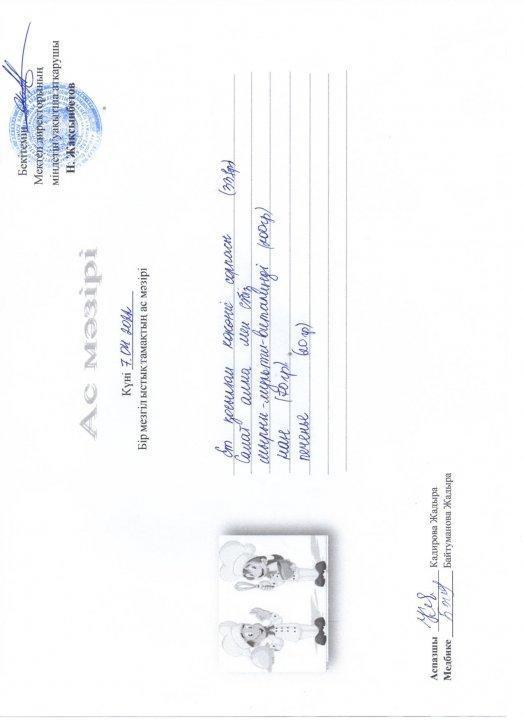 Бекітемін
Мектеп директорының
міндетін уақытша атқарушы
Н. Жақсыибетов
Ас мәзірі
Күні 7.04.2022
Бір мезгіл ыстық тамақтың ас мәзірі
Ет қосылған көкөніс сорпасы (33гр)
Салат алма мен сәбіз
шырын-мульти-витаминді (200гр)
нан (70гр)
печенье (20гр)
Аспазшы Кадирова Жадыра
Медбике Байтуманова Жадыра